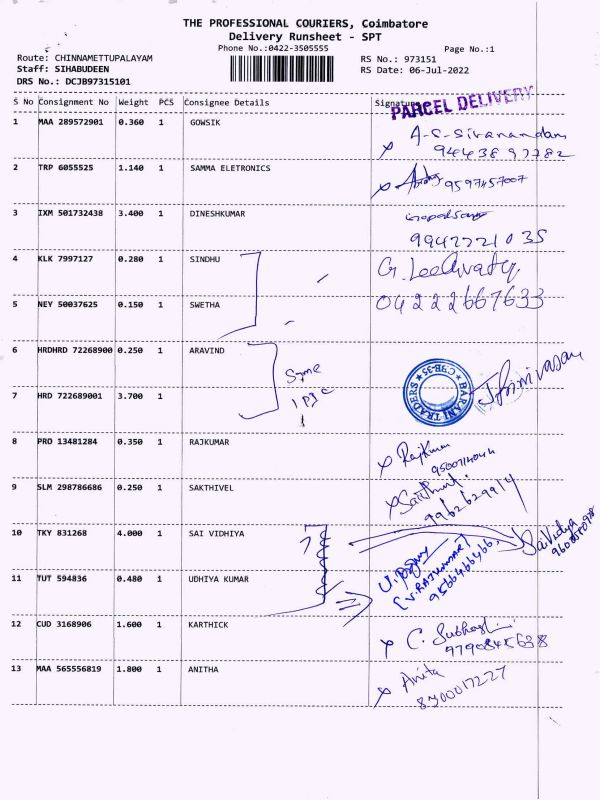 THE PROFESSIONAL COURIERS, Coimbatore
Delivery Runsheet - SPT
Phone No.:0422-3505555
Page No.:1
Route: CHINNAMETTUPALAYAM
Staff: SIHABUDEEN
DRS No.: DCJB97315101
RS No.: 973151
RS Date: 06-Jul-2022
S No Consignment No Weight PCS Consignee Details Signature
PARCEL DELIVERY
1 MAA 289572901 0.360 1 GOWSIK
A-S-Sivanandam
94438 97782
2 TRP 6055525 1.140 1 SAMMA ELETRONICS
9597457007
3 IXM 501732438 3.400 1 DINESHKUMAR
9942221035
4 KLK 7997127 0.280 1 SINDHU
G.
5 NEY 50037625 0.150 1 SWETHA
04222667633
6 HRDHRD 72268900 0.250 1 ARAVIND
Same
BARANI TRADERS
CBE-35
Srinivasan
7 HRD 722689001 3.700 1
8 PRO 13481284 0.350 1 RAJKUMAR
Rajkumar
9 SLM 298786686 0.250 1 SAKTHIVEL
Sakthivel
9962629914
10 TKY 831268 4.000 1 SAI VIDHIYA
SaiVidya
11 TUT 594836 0.480 1 UDHIYA KUMAR
[V.RAJKUMAR]
9566466466
12 CUD 3168906 1.600 1 KARTHICK
C. Subhashini
9790845638
13 MAA 565556819 1.800 1 ANITHA
Anita
8300017227